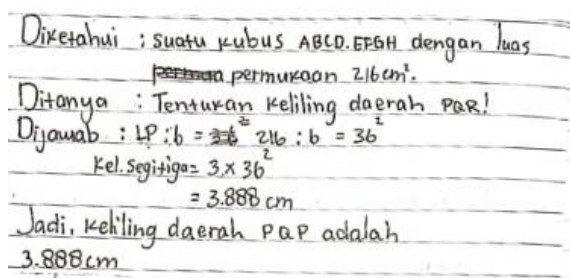 Diketahui : suatu kubus ABCD.EFGH dengan luas
permukaan 216cm².
Ditanya : Tentukan keliling daerah PQR!
Dijawab : LP : 6 = 216 : 6 = 36²
Kel. Segitiga = 3 x 36²
= 3.888 cm
Jadi, keliling daerah PQP adalah
3.888 cm